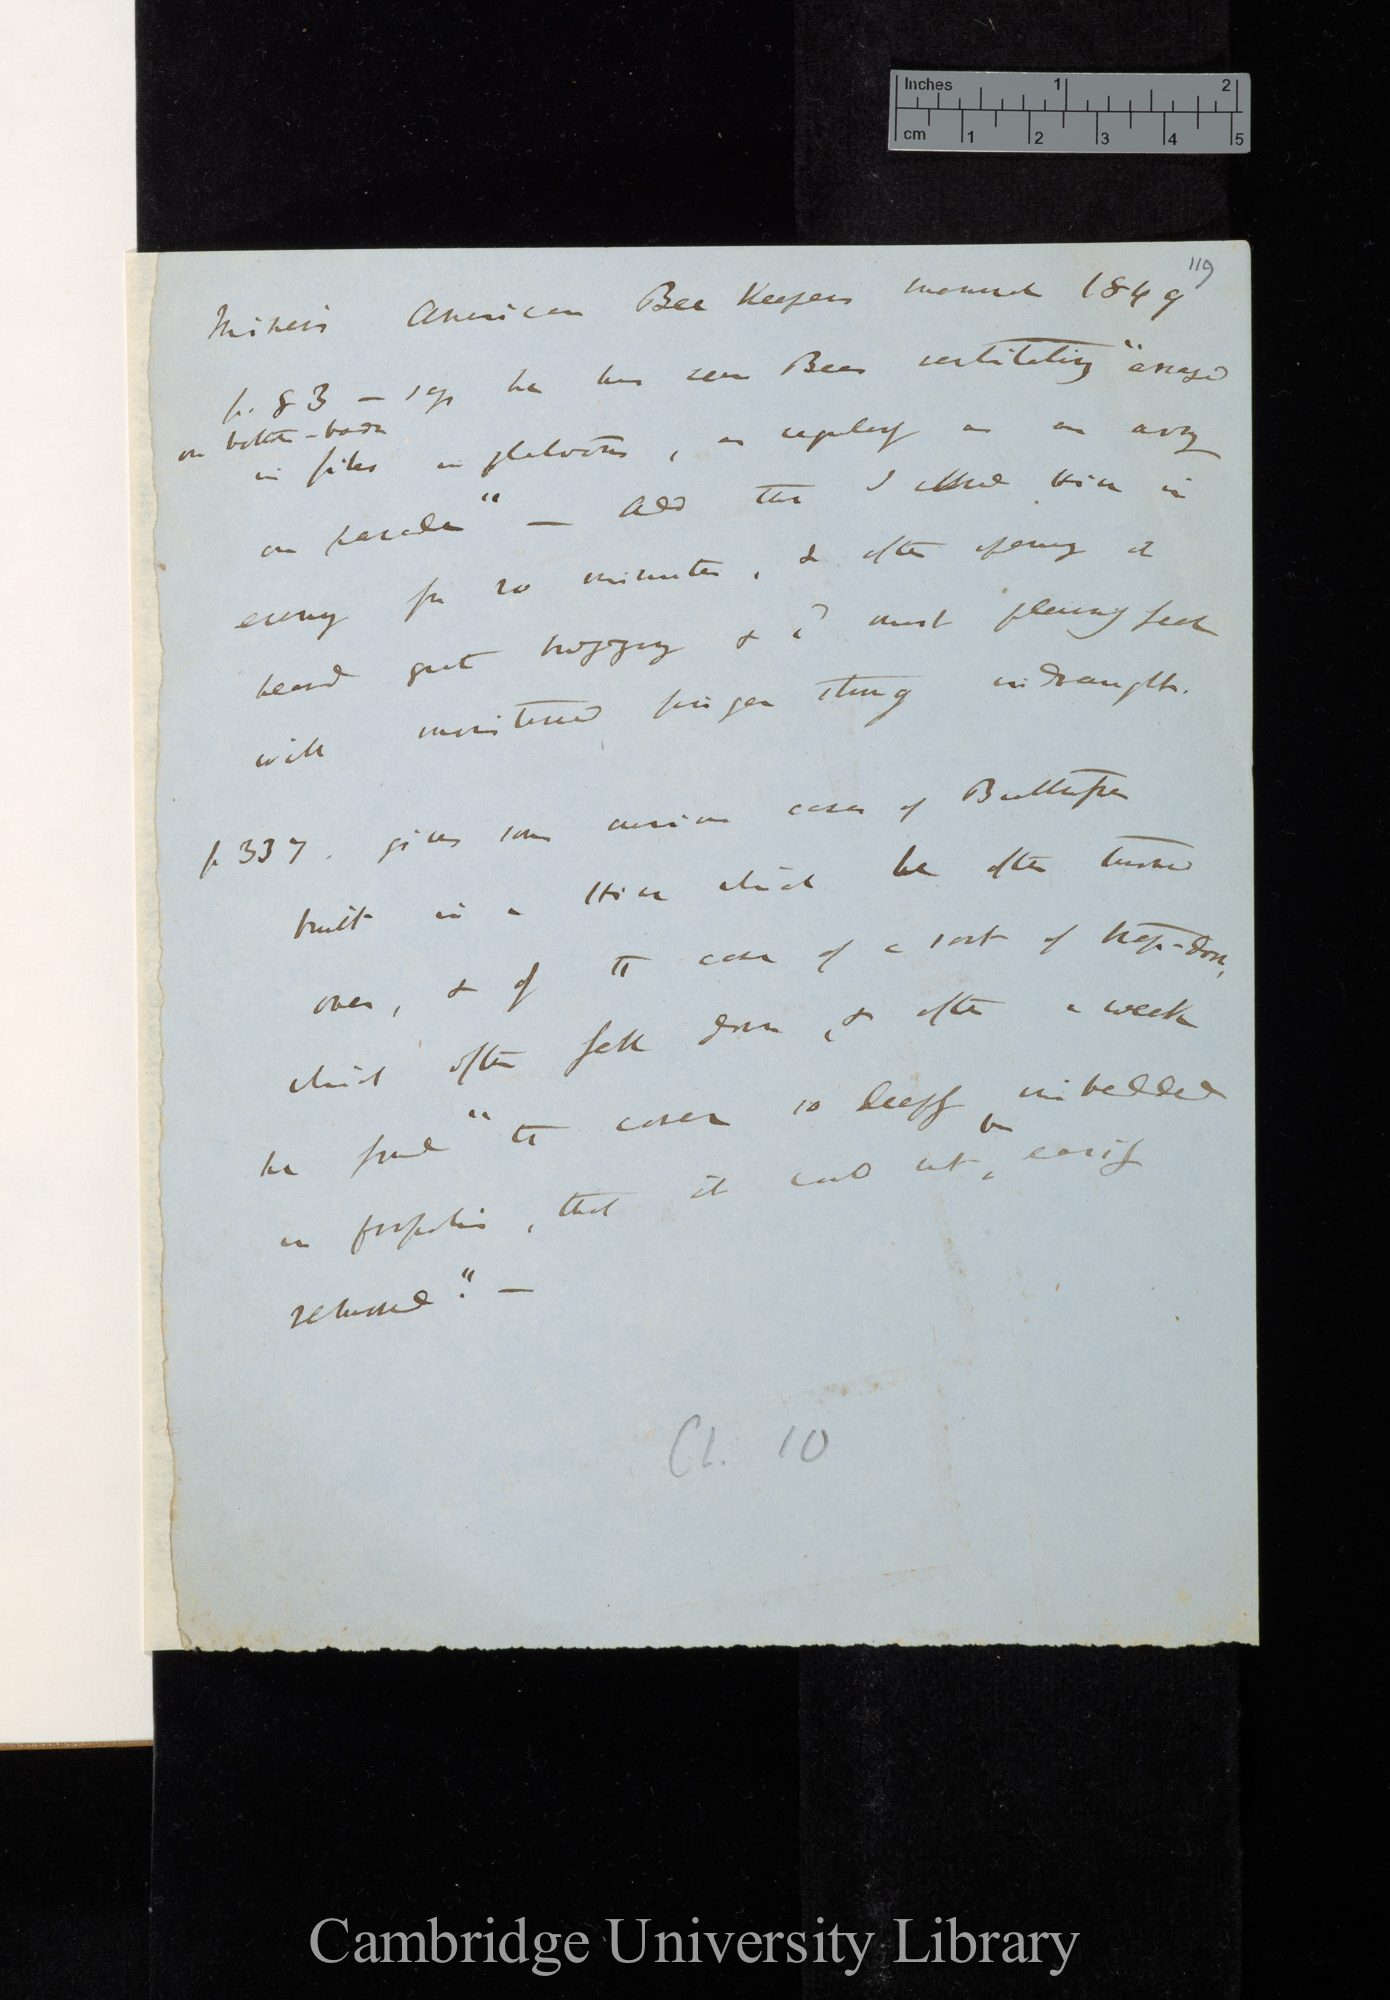 Inches 1 2
cm 1 2 3 4 5
119
Miner's American Bee Keepers manual 1849
p. 83 — says he has seen Bees ventilating "arrayed
on bottom-board
in files in platoons, as regularly as an army
on parade" — Add that I closed Hive in
evening for 20 minutes, & after opening it
heard great & must
with moistened finger strong indraught.
p 337. gives some curious cases of Buttresses
built in a Hive which he often turned
over, & of the case of a sort of trap-door,
which often fell down, & after a week
he found "the cover so deeply imbedded
be
in propolis, that it could not easily
removed". —
Ch. 10
Cambridge University Library